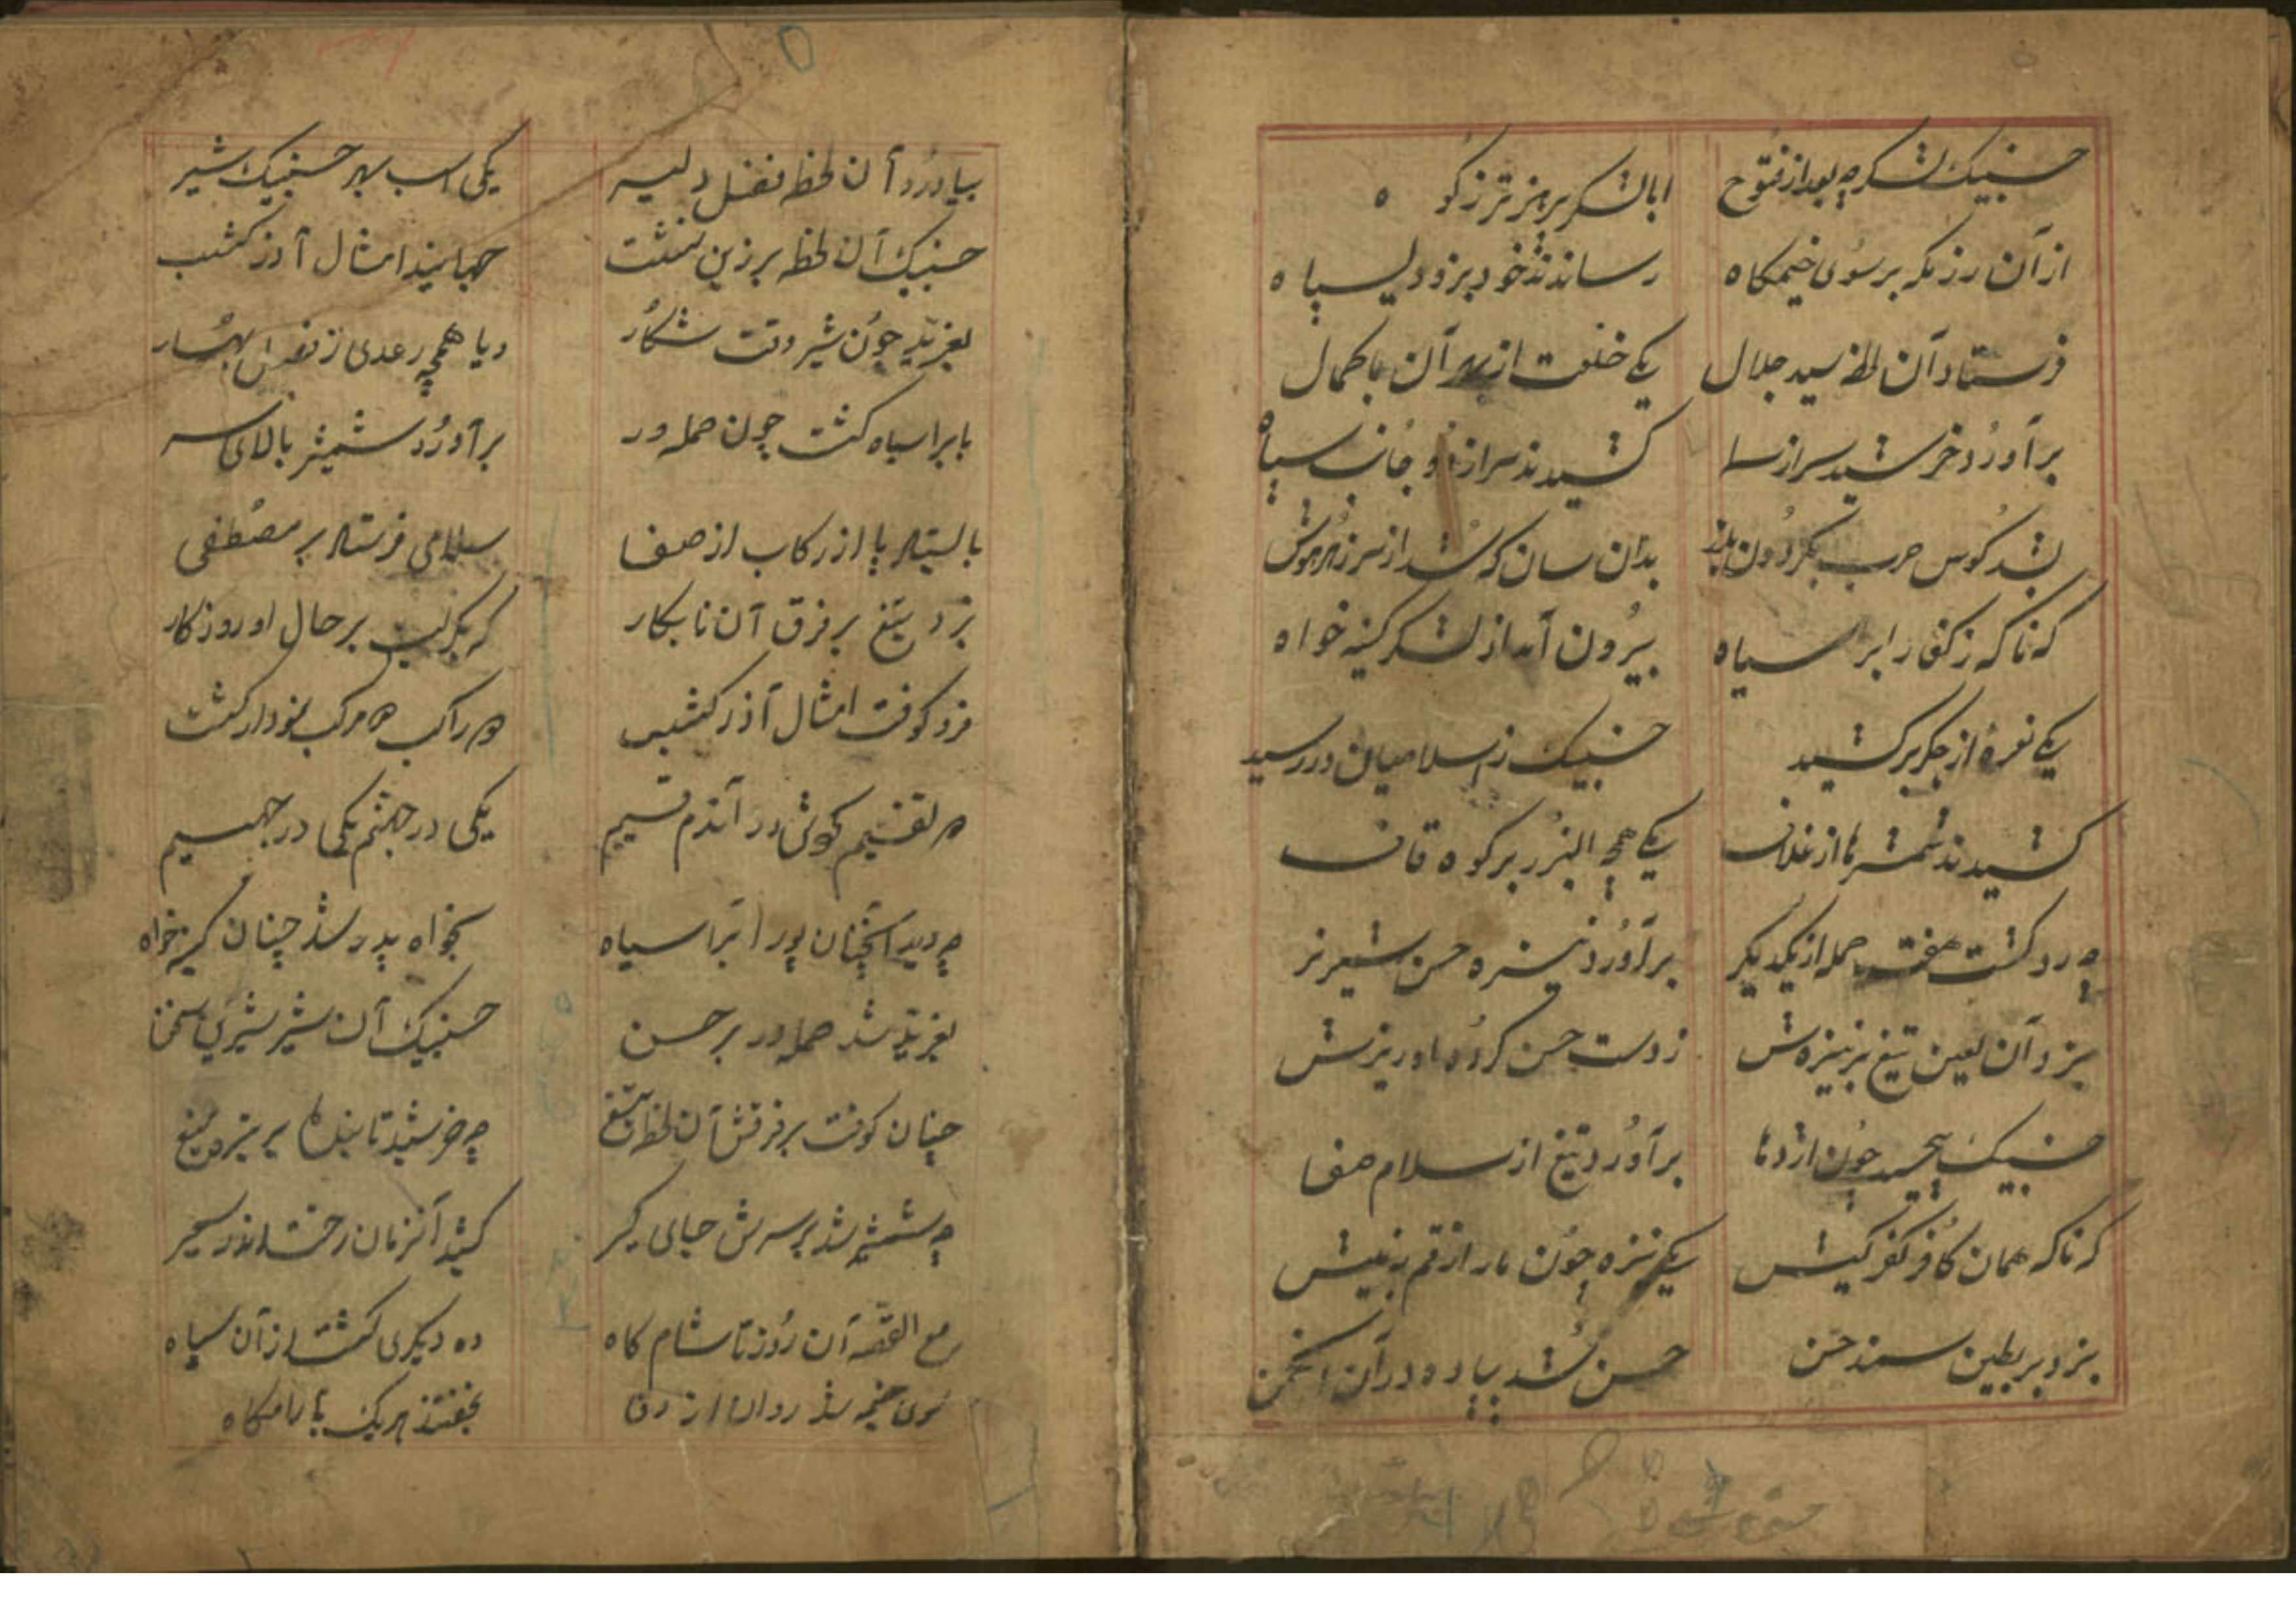 حنیک لشکر چه بعد از فتوح
ابا لشکر پر هنر تر ز کوه
از آن رزمگه بر سوی خیمگاه
رساندند خود بزودی سپاه
فرستاد آن لحظه سید جلال
یکی خلعت از بهر آن با کمال
برآورد خرشید سر از سما
کشیدند سر از دو جانب سپاه
بشد کوس حرب بگردون بلند
بدان سان که شد از سر زهره هوش
که ناگه ز کفار ابر سیاه
بیرون آمد از لشکر کینه خواه
یکی نعره از جگر برکشید
حنیک ز اسلامیان در رسید
کشیدند شمشیرها از غلاف
یکی همچو البرز بر کوه قاف
چه رد گشت هفت حمله از یکدیگر
برآورد نیزه حسن شیر نر
بزد آن لعین تیغ بر نیزه‌ش
ز دست حسن کرد او ریزش
حنیک بپیچید چون اژدها
برآورد تیغ از سلام صفا
که ناگه همان کافر کفر کیش
یکی نیزه چون مار ارقم به نیش
بزد بر بطین سمند حسن
حسن شد پیاده در آن انجمن
بیاورد آن لحظه فضل دلیر
یکی اسب بهر حنیک شیر
حنیک آن لحظه بر زین نشست
جهانید امثال آذر کشسب
بغرید چون شیر وقت شکار
و یا همچه رعدی ز فصل بهار
با ابر سیاه گشت چون حمله ور
برآورد شمشیر بالای سر
بایستاد پا از رکاب از صفا
سلامی فرستاد بر مصطفی
بزد تیغ بر فرق آن نابکار
که بگریست بر حال او روزگار
فرد کوفت امثال آذر کشسب
دو راکب دو مرکب نمودار گشت
دو تقسیم گویش در آندم قسیم
یکی در جهنم یکی در جهیم
چه دید آنچنان پور ابرا سیاه
بخواه پدر شد چنان کینه خواه
بغرید شد حمله ور بر حسن
حنیک آن شیر شیرین سخن
چنان کوفت بر فرقش آن لحظه تیغ
چه خرشید تابنده بر تیره میغ
چه شمشیر شد بر سرش جای گیر
کشید آنزمان رخت اندر سعیر
مع القصه آن روز تا شام گاه
ده دیگری کشت از آن سپاه
سوی خیمه شد روان از وفا
بخفتند هر یک بارامگاه